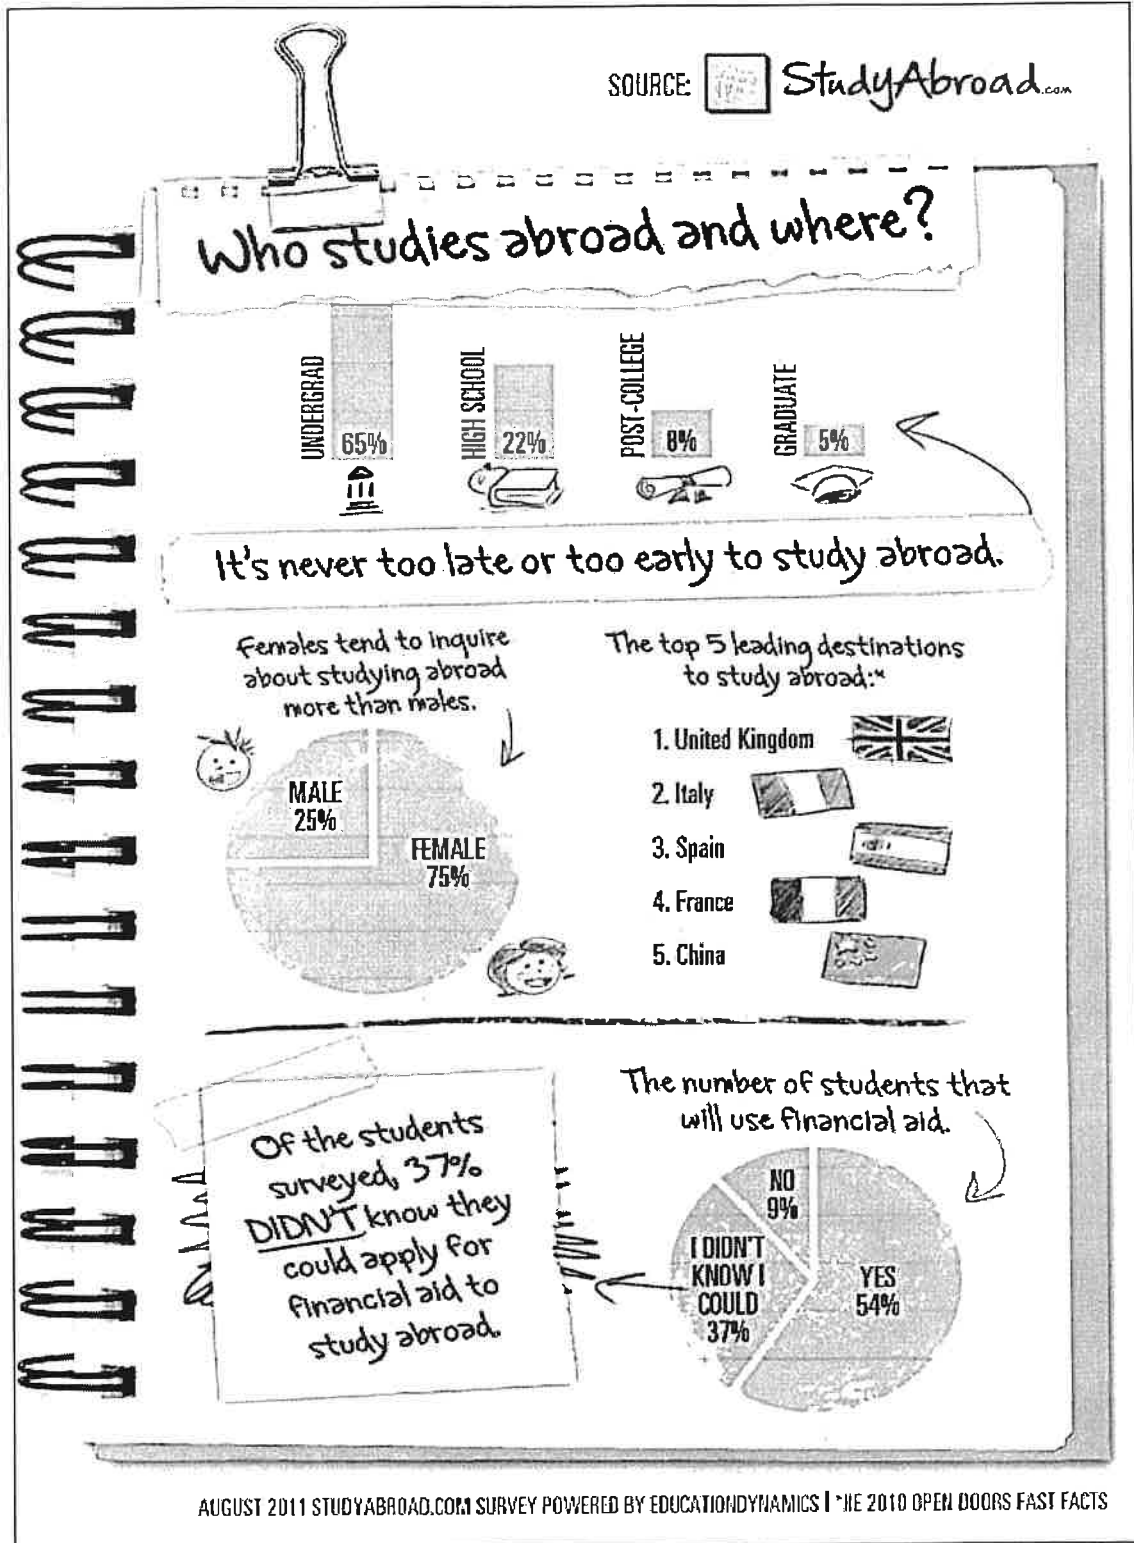 SOURCE: StudyAbroad.com
Who studies abroad and where?
UNDERGRAD
65%
HIGH SCHOOL
22%
POST-COLLEGE
8%
GRADUATE
5%
It's never too late or too early to study abroad.
Females tend to inquire
about studying abroad
more than males.
MALE
25%
FEMALE
75%
The top 5 leading destinations
to study abroad:*
1. United Kingdom
2. Italy
3. Spain
4. France
5. China
Of the students
surveyed, 37%
DIDN'T know they
could apply for
financial aid to
study abroad.
The number of students that
will use financial aid.
NO
9%
I DIDN'T
KNOW I
COULD
37%
YES
54%
AUGUST 2011 STUDYABROAD.COM SURVEY POWERED BY EDUCATIONDYNAMICS | *IIE 2010 OPEN DOORS FAST FACTS